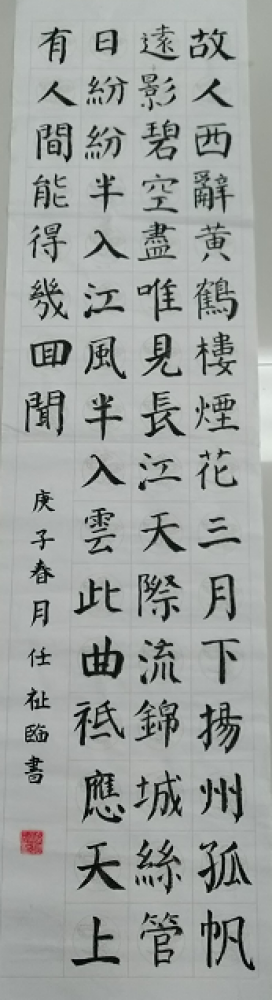 故人西辭黃鶴樓煙花三月下揚州孤帆
遠影碧空盡唯見長江天際流錦城絲管
日紛紛半入江風半入雲此曲祗應天上
有人間能得幾回聞
庚子春月任祉臨書